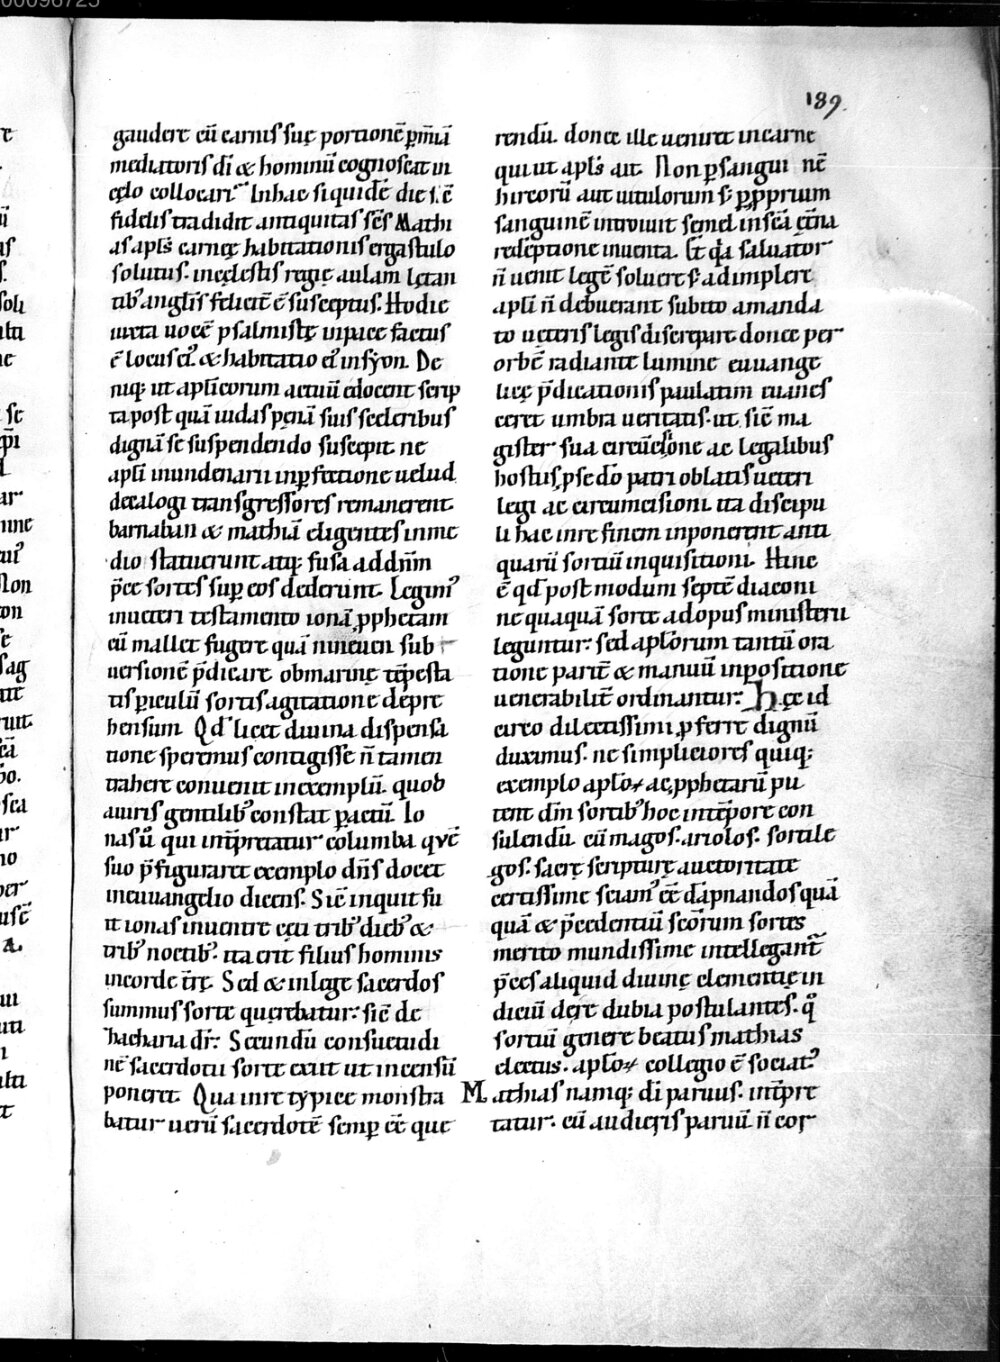 189.
gaudere cū carnis suę portionē ꝑ manū
mediatoris dī & hominū cognoscat in
cęlo collocari. In hac siquidē die s. ē
fidelis tradidit antiquitas scs Mathi
as apls carnęę habitationis ergastulo
solutus. in cęlestis regię aulam lętan
tib; anglis felicit̄ ē susceptus. Hodie
iuxta uocē psalmistę in pace factus
ē locus ei᷒ & habitatio ei᷒ in syon. De
niq; ut aplicorum actuū edocent scrip
ta post quā iudas pęnā suis sceleribus
dignā se suspendendo suscepit ne
apli in undenarii inꝑfectione uelud
decalogi transgressores remanerent
barnaban & mathiā eligentes in me
dio statuerunt atq; fusa ad dn̄m
p̄ce sortes suꝑ eos dederunt. Legim᷒
in ueteri testamento ionā ꝓphetam
cū mallet fugere quā nineuen sub
uersionē p̄dicare ob marinę tēpesta
tis ꝑiculū sortis agitatione dep̄re
hensum. Qd licet diuina dispensa
tione speremus contigisse n̄ tamen
trahere conuenit in exemplū. quod
a uiris gentilib; constat ꝑactū. Io
nas ū qui int̄pretatur columba quē
suo p̄figuraret exemplo dn̄s docet
in euuangelio dicens. Sic̄ inquit fu
it ionas in uentre ceti trib; dieb; &
trib; noctib;. ita erit filius hominis
in corde t̄rę. Sed & in lege sacerdos
summus sorte querebatur. sic̄ de
zacharia dr̄. Secundū consuetudi
nē sacerdotii sorte exiit ut incensū
poneret. Qua in re typice monstra
batur uerū sacerdotē semꝑ ēē que
rendū. donec ille ueniret in carne
qui ut apls ait. Non ꝑ sangui nē
hircorū aut uitulorum s; ꝑ ꝓprium
sanguinē introiuit semel in scā et̄na
redēptione inuenta. Et q̄a saluator
n̄ uenit legē soluere s; adimplere
apli n̄ debuerant subito amanda
to ueteris legis discrepare donec per
orbē radiante lumine euuange
licę p̄dicationis paulatim euanes
ceret umbra ueritatis. ut sic̄ ma
gister sua circūcisione ac legalibus
hostiis ꝓ se dō patri oblatis ueteri
legi ac circumcisioni. ita discipu
li hac in re finem inponerent anti
quarū sortiū inquisitioni. Hinc
ē qd post modum septē diaconi
ne quaquā sorte ad opus ministerii
leguntur. sed aplorum tantū ora
tione parit̄ & manuū inpositione
uenerabilit̄ ordinantur. Hęc id
circo dilectissimi ꝓferre dignū
duximus. ne simpliciores quiq;
exemplo aploꝝ ac ꝓphetarū pu
tent dn̄m sortib; hoc in tēpore con
sulendū. cū magos. ariolos. sortile
gos. sacrę scripturę auctoritate
certissime sciam᷒ ēē dāpnandos quā
quā & p̄cedentiū scōrum sortes
merito mundissime intellegant̄
p̄ces aliquid diuinę clementię in
diciū de re dubia postulantes. q̄
sortiū genere beatus mathias
electus. aploꝝ collegio ē sociat᷒
Mathias namq; dī paruus. int̄pre
tatur. cū audieris paruū n̄ cor